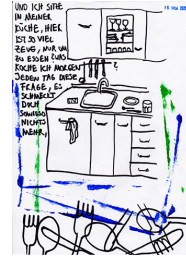 UND ICH SITZE
IN MEINER
KÜCHE, HIER
IST SO VIEL
ZEUG, NUR UM
ZU ESSEN? WAS
KOCHE ICH MORGEN?
JEDEN TAG DIESE
FRAGE, ES
SCHMECKT
DOCH
SOWIESO
NICHTS
MEHR,